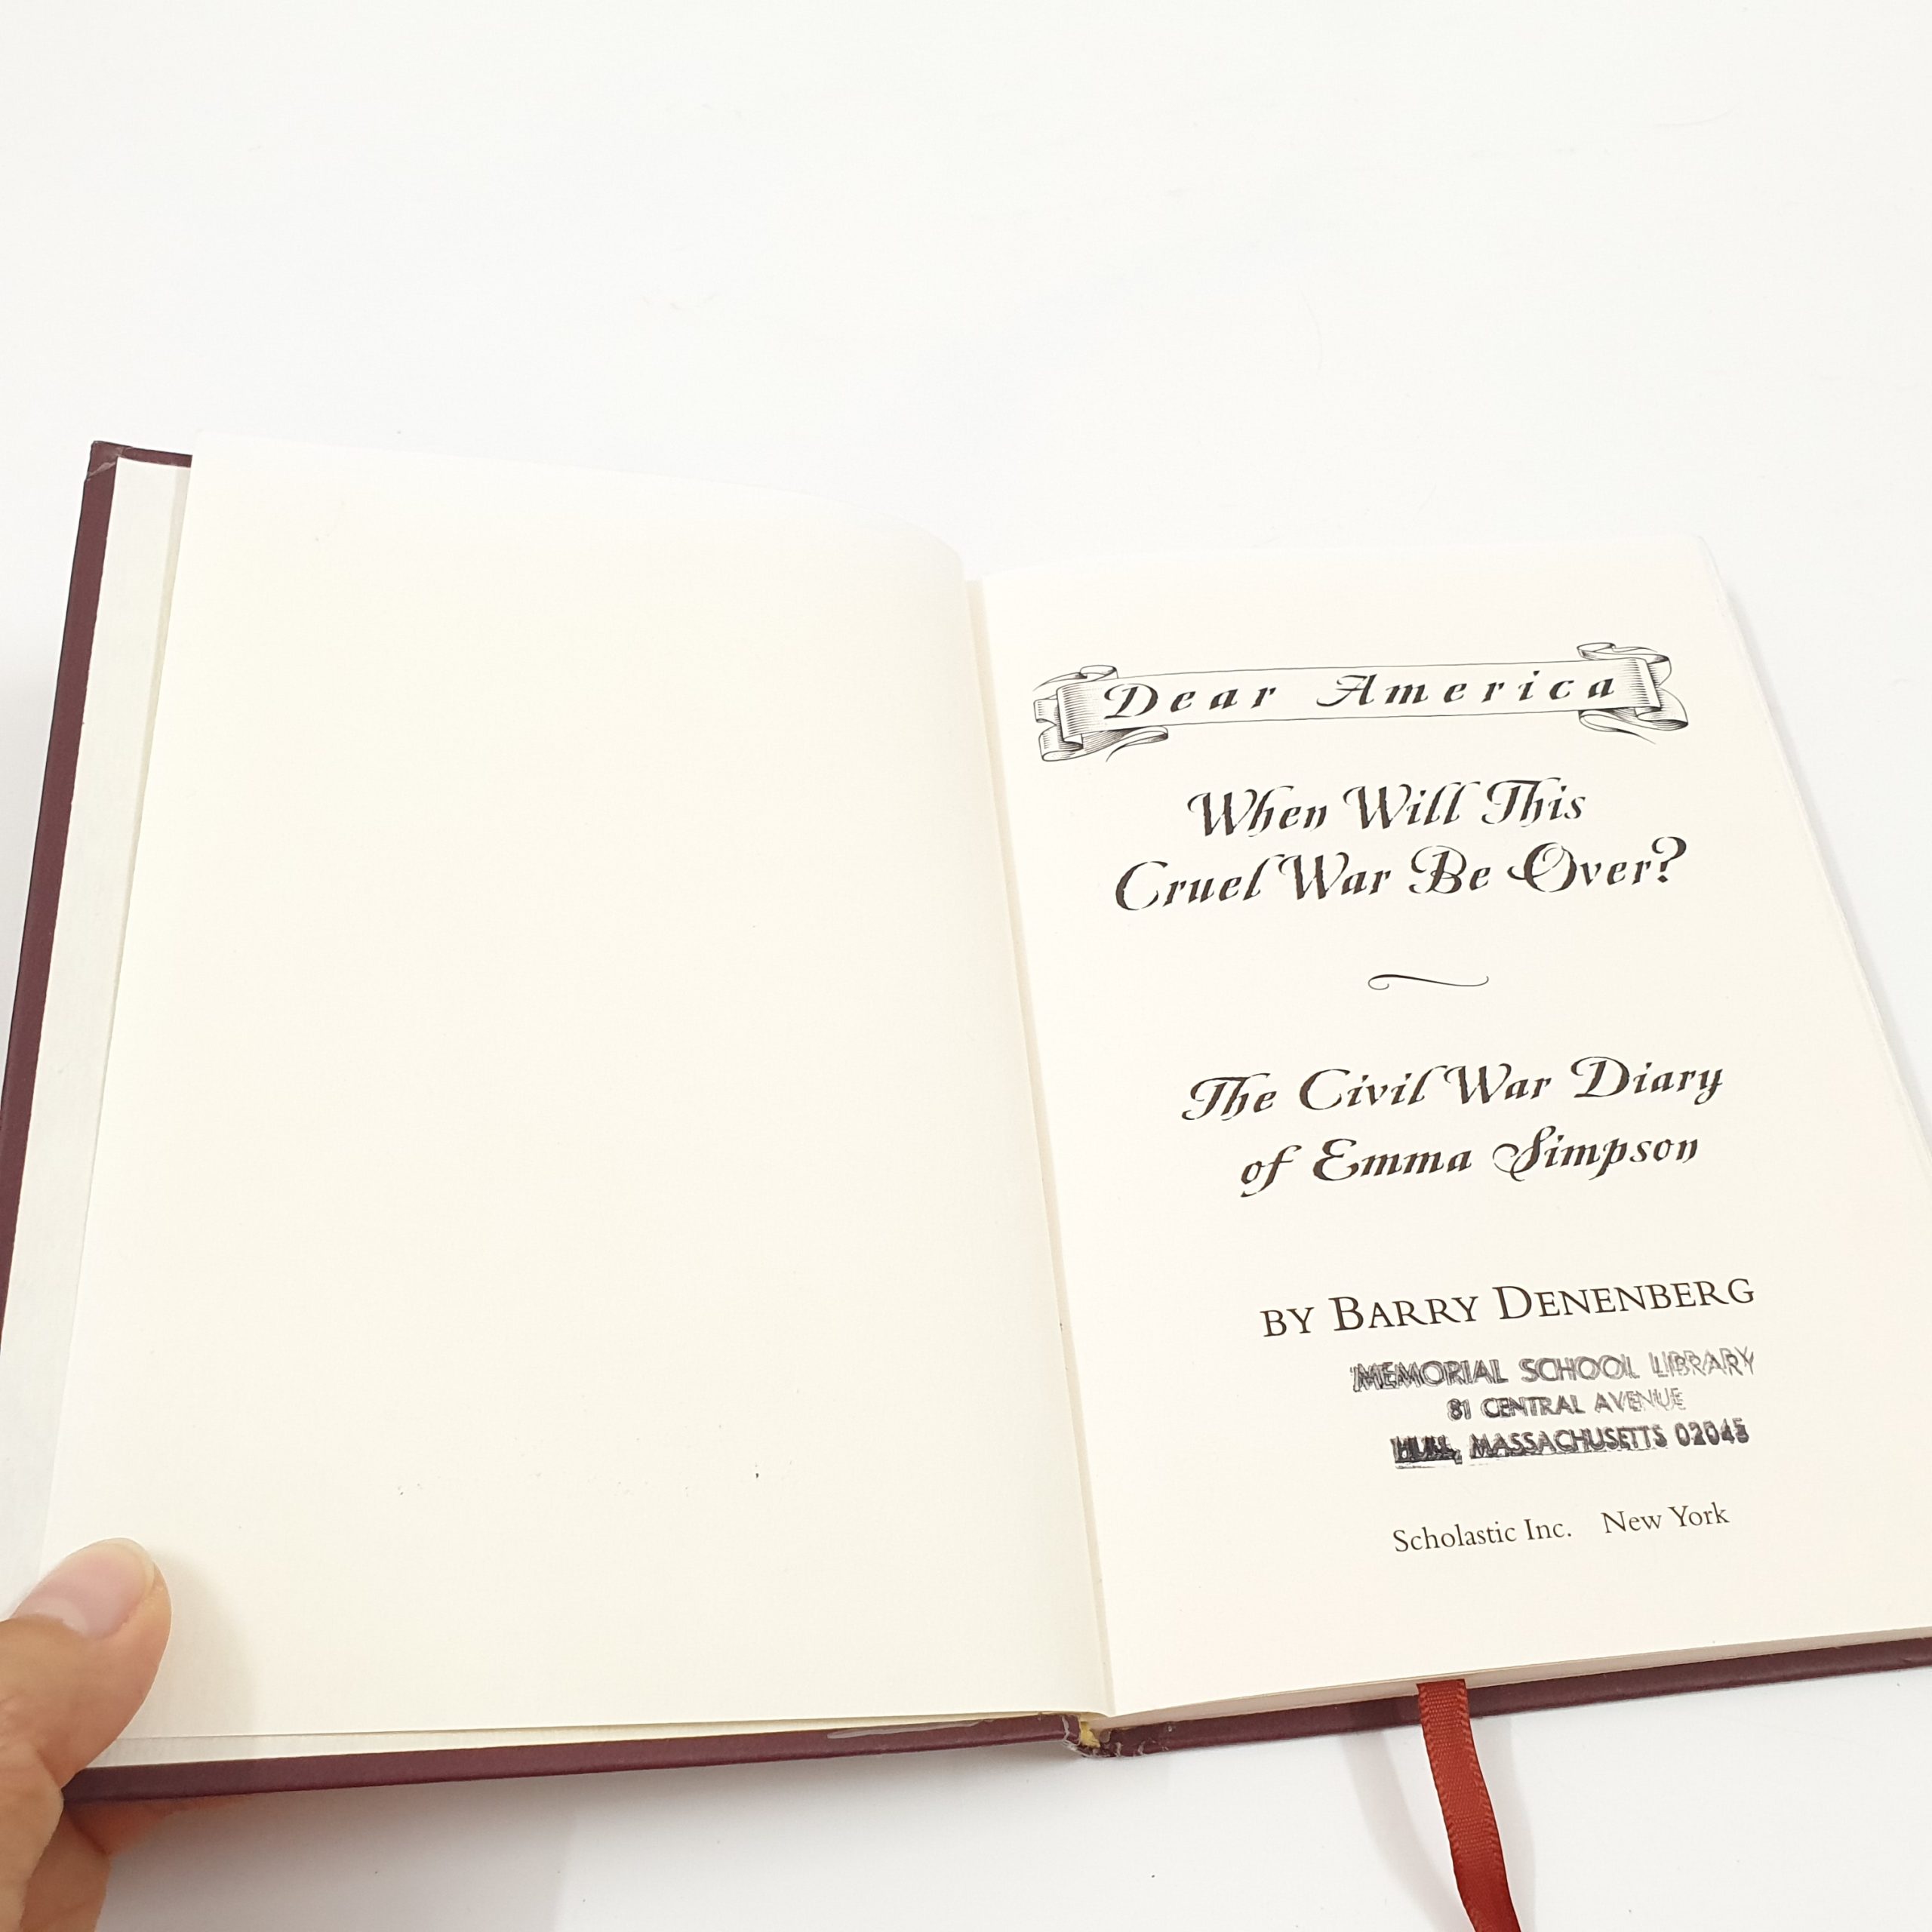 Dear America
When Will This
Cruel War Be Over?
The Civil War Diary
of Emma Simpson
BY BARRY DENENBERG
MEMORIAL SCHOOL LIBRARY
81 CENTRAL AVENUE
HULL, MASSACHUSETTS 02045
Scholastic Inc. New York